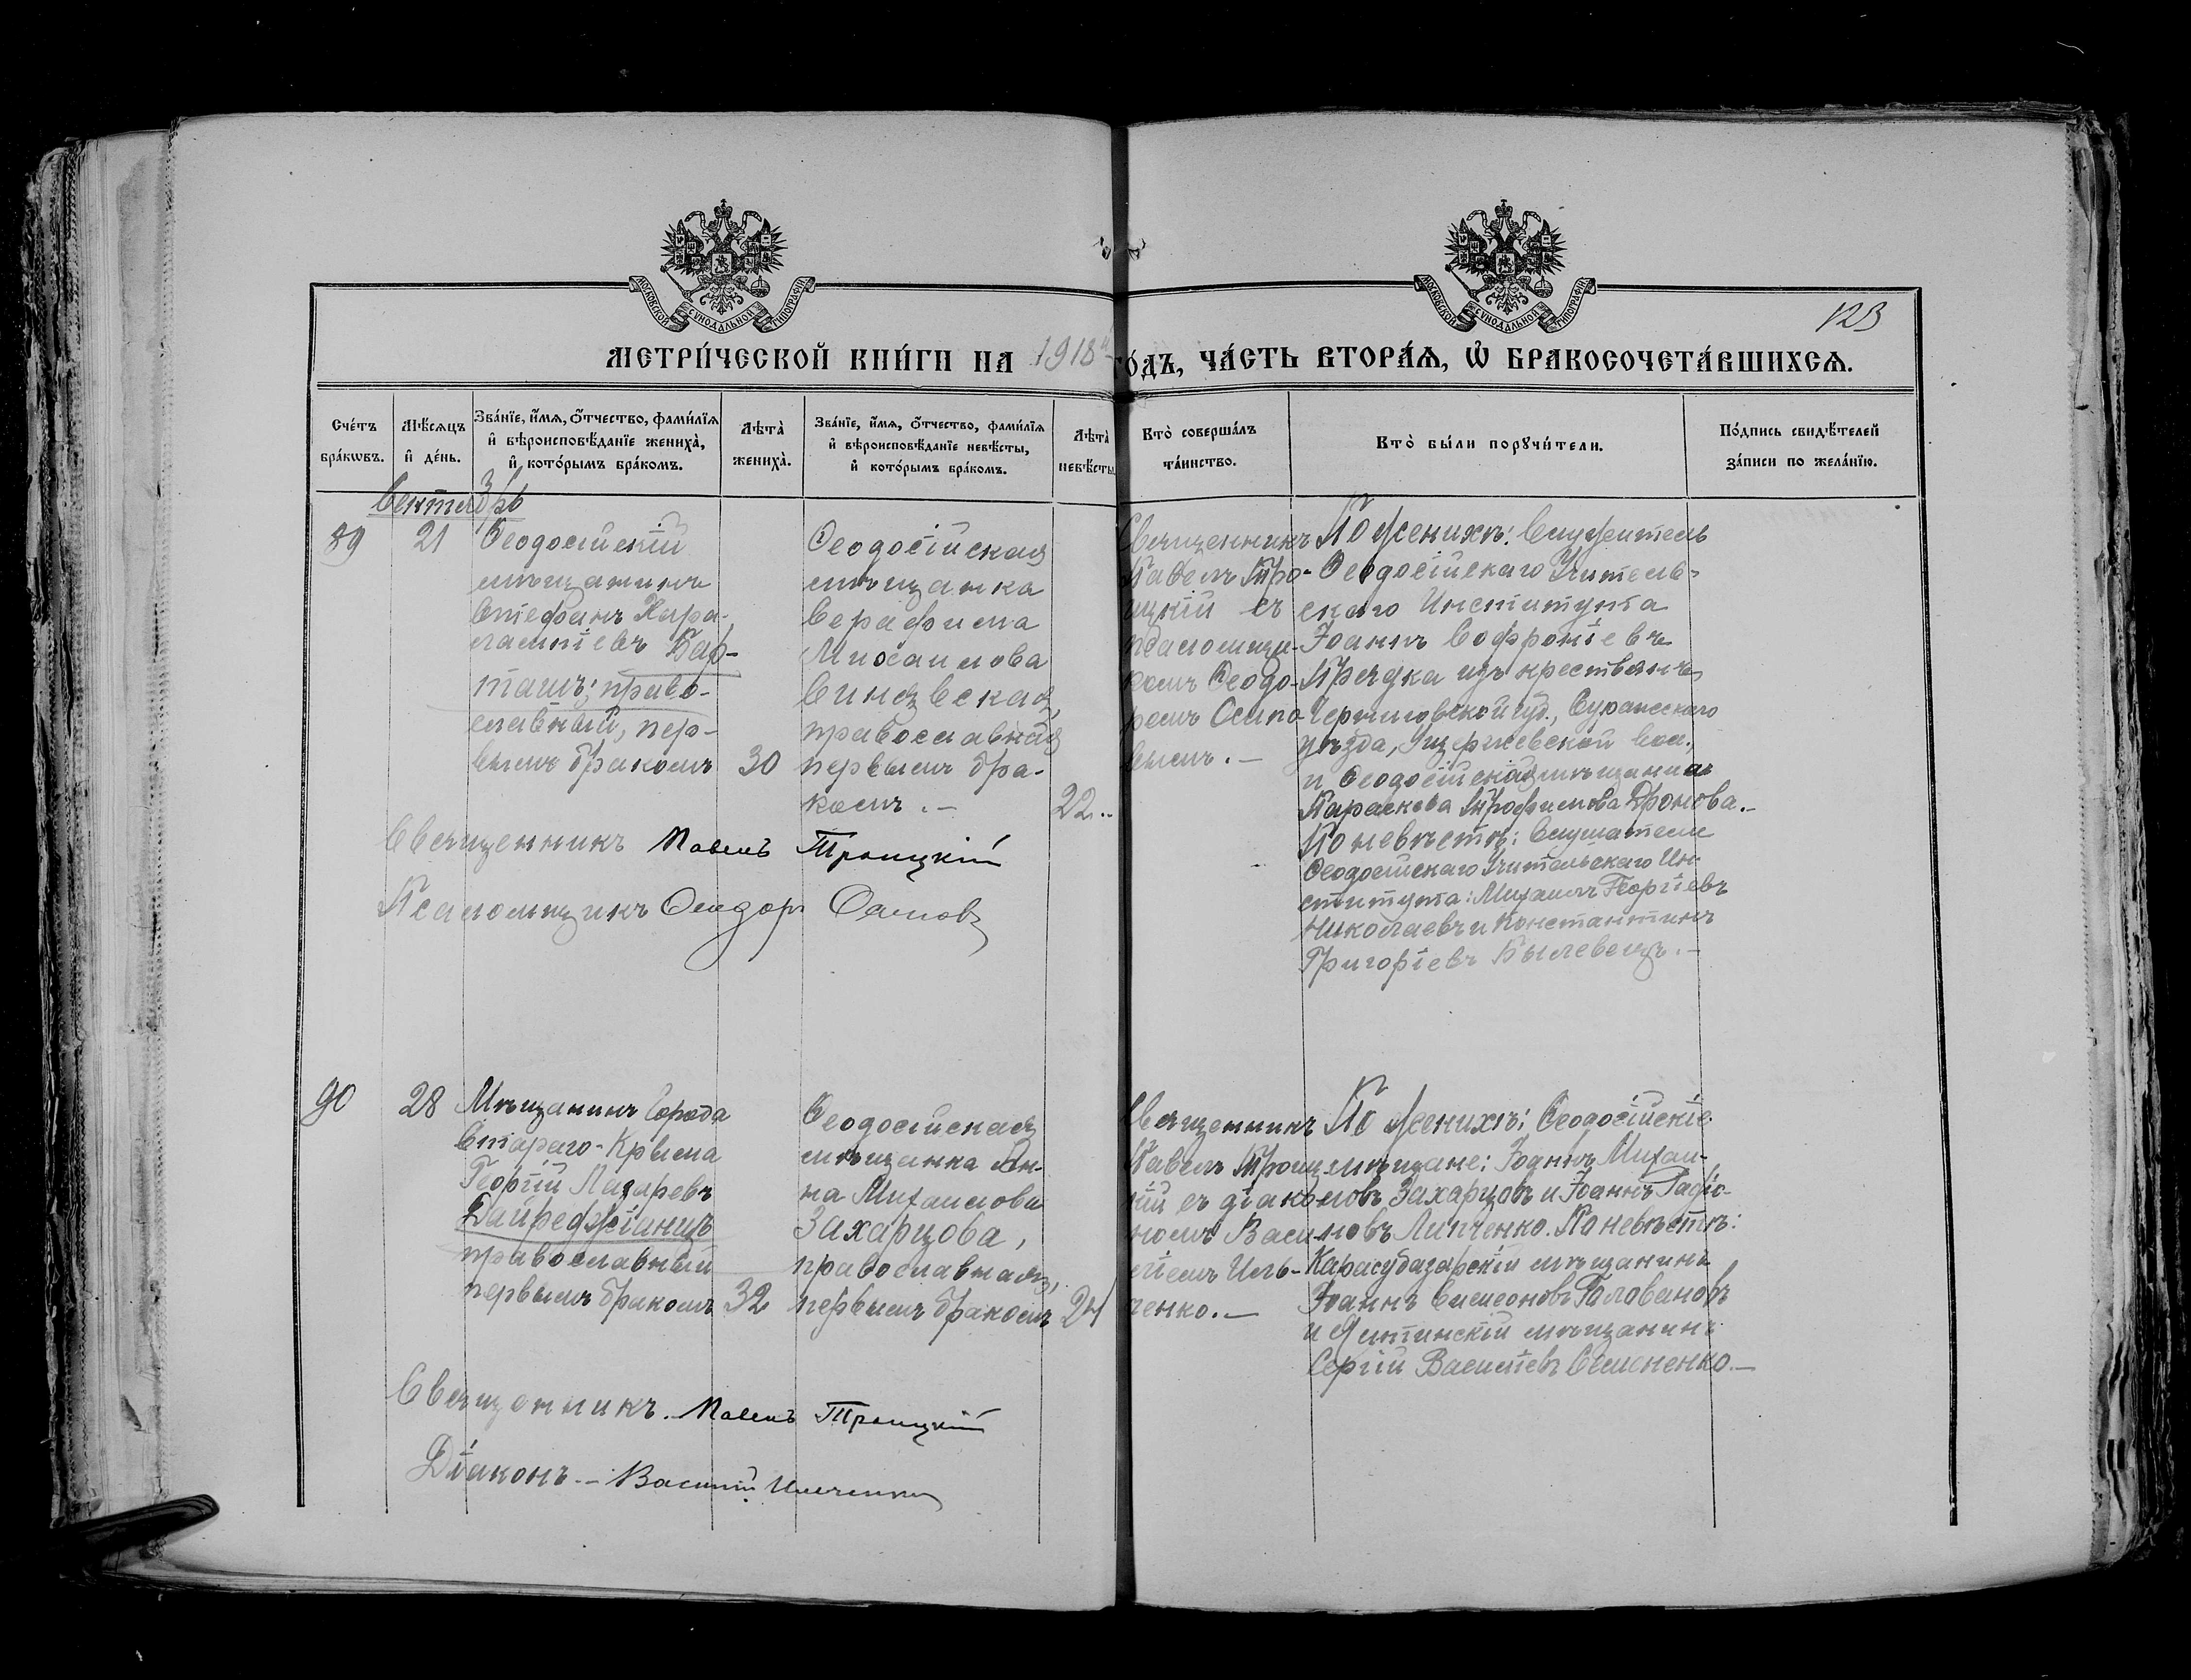 МОСКОВСКОЙ СѴНОДАЛЬНОЙ ТИПОГРАФІИ
МОСКОВСКОЙ СѴНОДАЛЬНОЙ ТИПОГРАФІИ
123
МЕТРИ́ЧЕСКОЙ КНИ́ГИ НА 1918 ГО́ДЪ, ЧА́СТЬ ВТОРА́Я, Ѡ҆ БРАКОСОЧЕТА́ВШИХСЯ.
Сче́тъ бра́кѡвъ.
Мѣ́сяцъ и҆ де́нь.
Зва́нїе, и҆́мя, ѻ҆́тчество, фами́лїя и҆ вѣроисповѣ́данїе жениха̀, и҆ кото́рымъ бра́комъ.
Лѣта̀ жениха̀.
Зва́нїе, и҆́мя, ѻ҆́тчество, фами́лїя и҆ вѣроисповѣ́данїе невѣ́сты, и҆ кото́рымъ бра́комъ.
Лѣта̀ невѣ́сты.
Кто̀ соверша́лъ та́инство.
Кто̀ бы́ли порꙋчи́тели.
По́дпись свидѣ́телей за́писи по жела́нїю.
Сентябрь
89
21
Ѳеодосійскій
мѣщанинъ
Стефанъ Хара-
лампіевъ Бар-
ташъ; право-
славный, пер-
вымъ бракомъ
30
Ѳеодосійская
мѣщанка
Серафима
Мисаилова
Синявская,
православная
первымъ бра-
комъ.—
22..
Священникъ
Павелъ Тро-
ицкій съ
псаломщи-
комъ Ѳеодо-
ромъ Осипо-
вымъ.—
По женихѣ: Служитель
Ѳеодосійскаго Учитель-
скаго Института
Іоаннъ Софроніевъ
Прядка изъ крестьянъ
Черниговской губ., Суражскаго
уѣзда, Ущерпьевской вол.
и Ѳеодосійская мѣщанка
Параскева Трофимова Дронова.—
По невѣстѣ: Слушатели
Ѳеодосійскаго Учительскаго Ин-
ститута: Михаилъ Георгіевъ
Николаевъ и Константинъ
Григорьевъ Былевецъ.—
Священникъ Павелъ Троицкій
Псаломщикъ Ѳеодоръ Осиповъ
90
28
Мѣщанинъ Города
Стараго-Крыма
Георгій Лазаревъ
Дайреджіанцъ
православный
первымъ бракомъ
32
Ѳеодосійская
мѣщанка Ан-
на Михаилова
Захарцова,
православная,
первымъ бракомъ
24
Священникъ
Павелъ Троиц-
кій съ діако-
номъ Васи-
ліемъ Иль-
ченко.—
По женихѣ: Ѳеодосійскіе
мѣщане: Іоаннъ Михаи-
ловъ Захарцовъ и Іоаннъ Родіо-
новъ Липченко. По невѣстѣ:
Карасубазарскій мѣщанинъ
Іоаннъ Симеоновъ Головановъ
и Ялтинскій мѣщанинъ
Сергій Василіевъ Семененко.—
Священникъ Павелъ Троицкій
Діаконъ.— Василій Ильченко